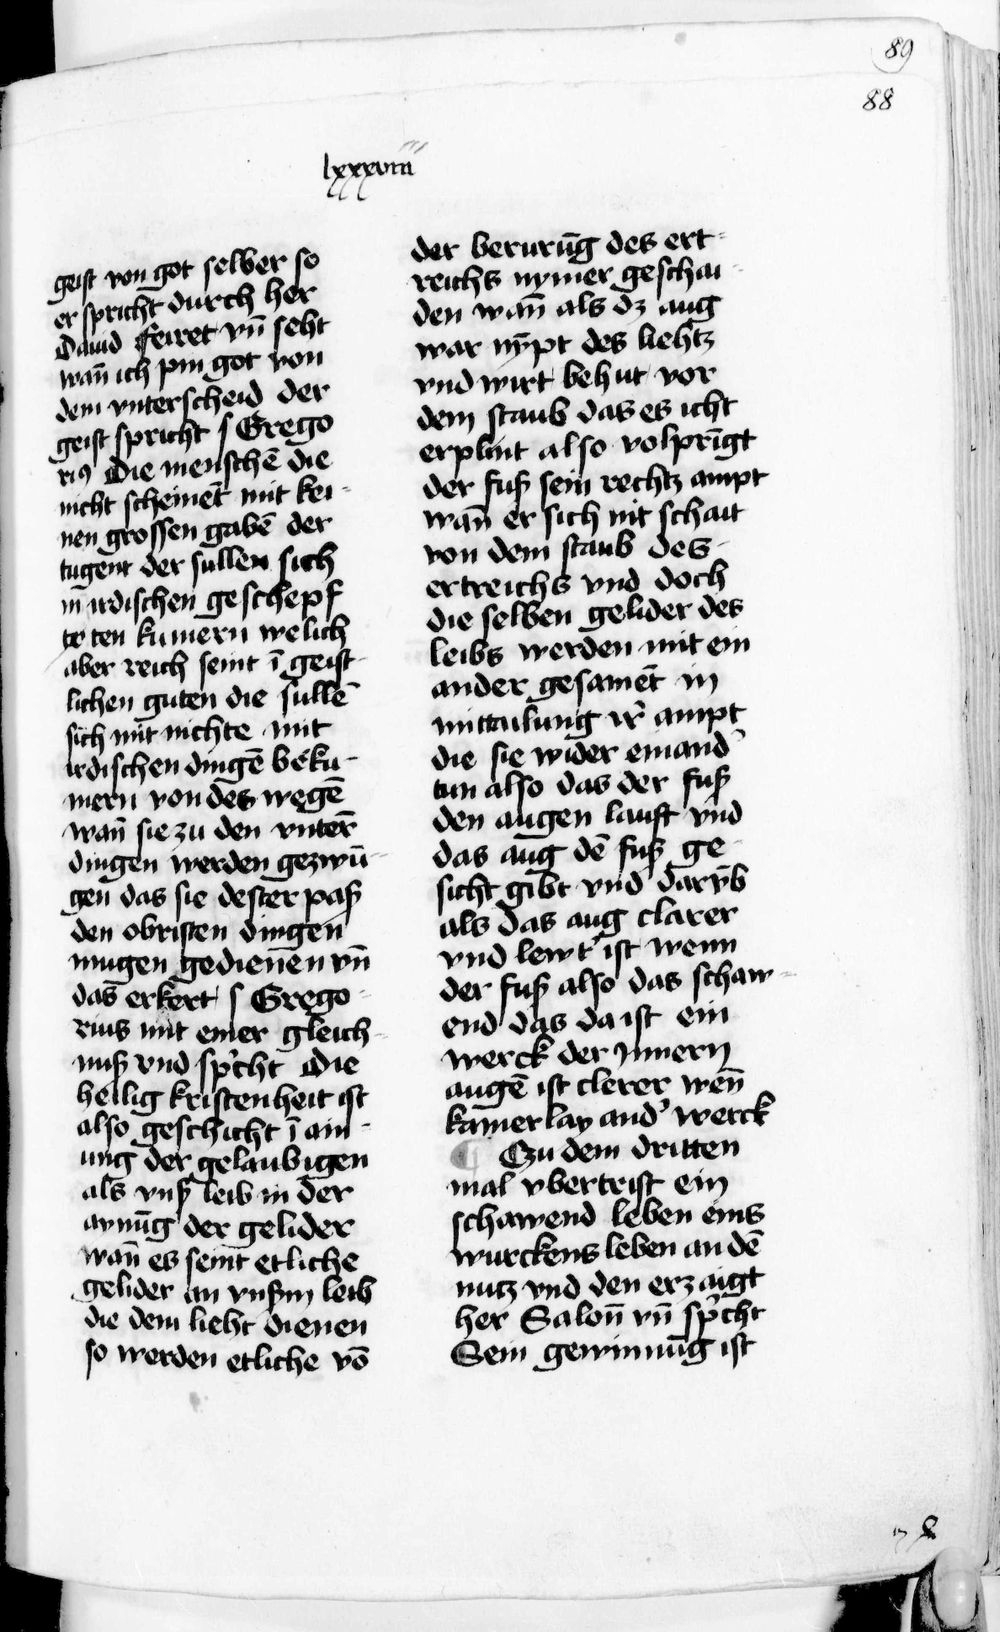 89
88
lxxxviii
geist von got selber so
er spricht durch her
Dauid Feiret vn̄ seht
wan̄ ich pin got von
dem vnterscheid der
geist spricht s Grego
riꝰ Die menschē die
nicht scheinēt mit kei-
nen grossen gabē der
tugent der sullen sich
in̄ irdischen geschepf
te ten kumern welich
aber reich seint ī geist-
lichen guten die sullē
sich mit nichte mit
irdischen dingē bekū-
mern von des wegē
wan̄ sie zu den vnterꝰ
dingen werden gezwū-
gen das sie dester paß
den obristen dingen
mugen gedienen vn̄
das erkert s Grego-
rius mit einer gleich-
nuß vnd spͥcht Die
heilig kristenheit ist
also geschicht ī ain-
ung der gelaubigen
als vnß leib in der
aynūg der gelider
wan̄ es seint etliche
gelider an vnßm leib
die dem lieht dienen
so werden etliche vō
der berurūg des ert-
reichs nymer geschai-
den wan̄ als dz aug
war nȳpt des liehtz
vnd wirt behut vor
dem staub das es icht
erplint also volprīgt
der fuß sein rechtz ampt
wan̄ er sich nit schait
von dem staub des
ertreichs vnd doch
die selben gelider des
leibs werden mit ein
ander gesamēt in
mittailung irꝰ ampt
die sie wider einandꝰ
tun also das der fuß
den augen lauft vnd
das aug dē fuß ge-
sicht gibt vnd darv̄b
als das aug clarer
vnd lewtꝰ ist wenn
der fuß also das schaw-
end das da ist ein
werck der ynnern
augē ist clerer wen̄
kamerlay andꝰ werck
¶ Czu dem dritten
mal vbertrist ein
schawend leben eins
wurckens leben an dē
nutz vnd den erzaigt
her Salon̄ vn̄ spͥcht
Sein gewinnūg ist